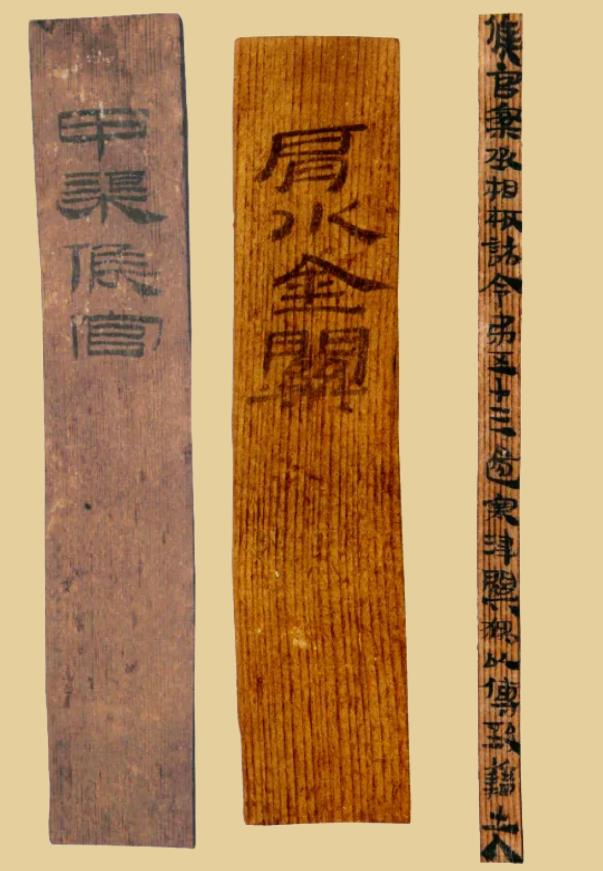 甲渠候官
肩水金關
候官案丞相板詔令弟五十三過塞津關獨以傳致籍出入